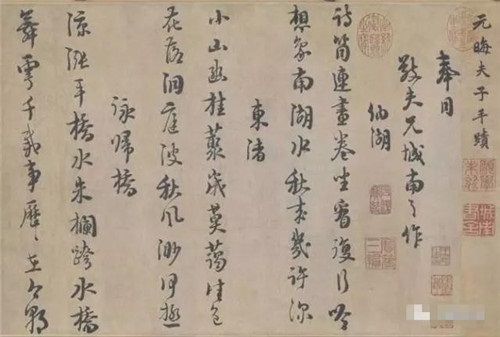 元晦夫子手蹟
奉同
敬夫兄城南之作
納湖
詩筒連畫卷坐看復行吟
想象南湖水秋來幾許深
東渚
小山幽桂叢歲莫藹佳色
花落洞庭波秋風渺何極
詠歸橋
綠漲平湖水朱欄跨小橋
舞雩千載事歷〻在今朝